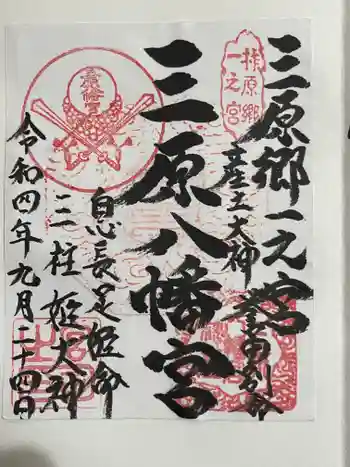 三原郷一之宮
産土大神
誉田別命
三原八幡宮
息長足姫命
三柱姫大神
令和四年九月二十四日
三原郷
一之宮